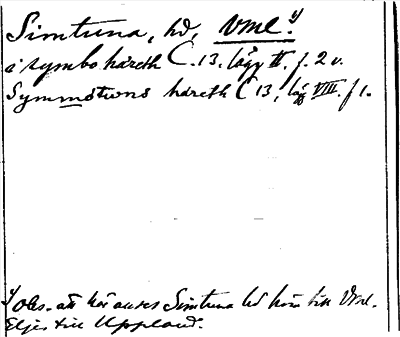 Simtuna, hd, Vml. 1)
i symbo häreth C. 13, lägg II. f. 2 v.
Symmötuns häreth C 13, lägg VIII. f 1.
1) Obs. att här anses Simtuna hd höra till Vml.
Eljes till Uppland.